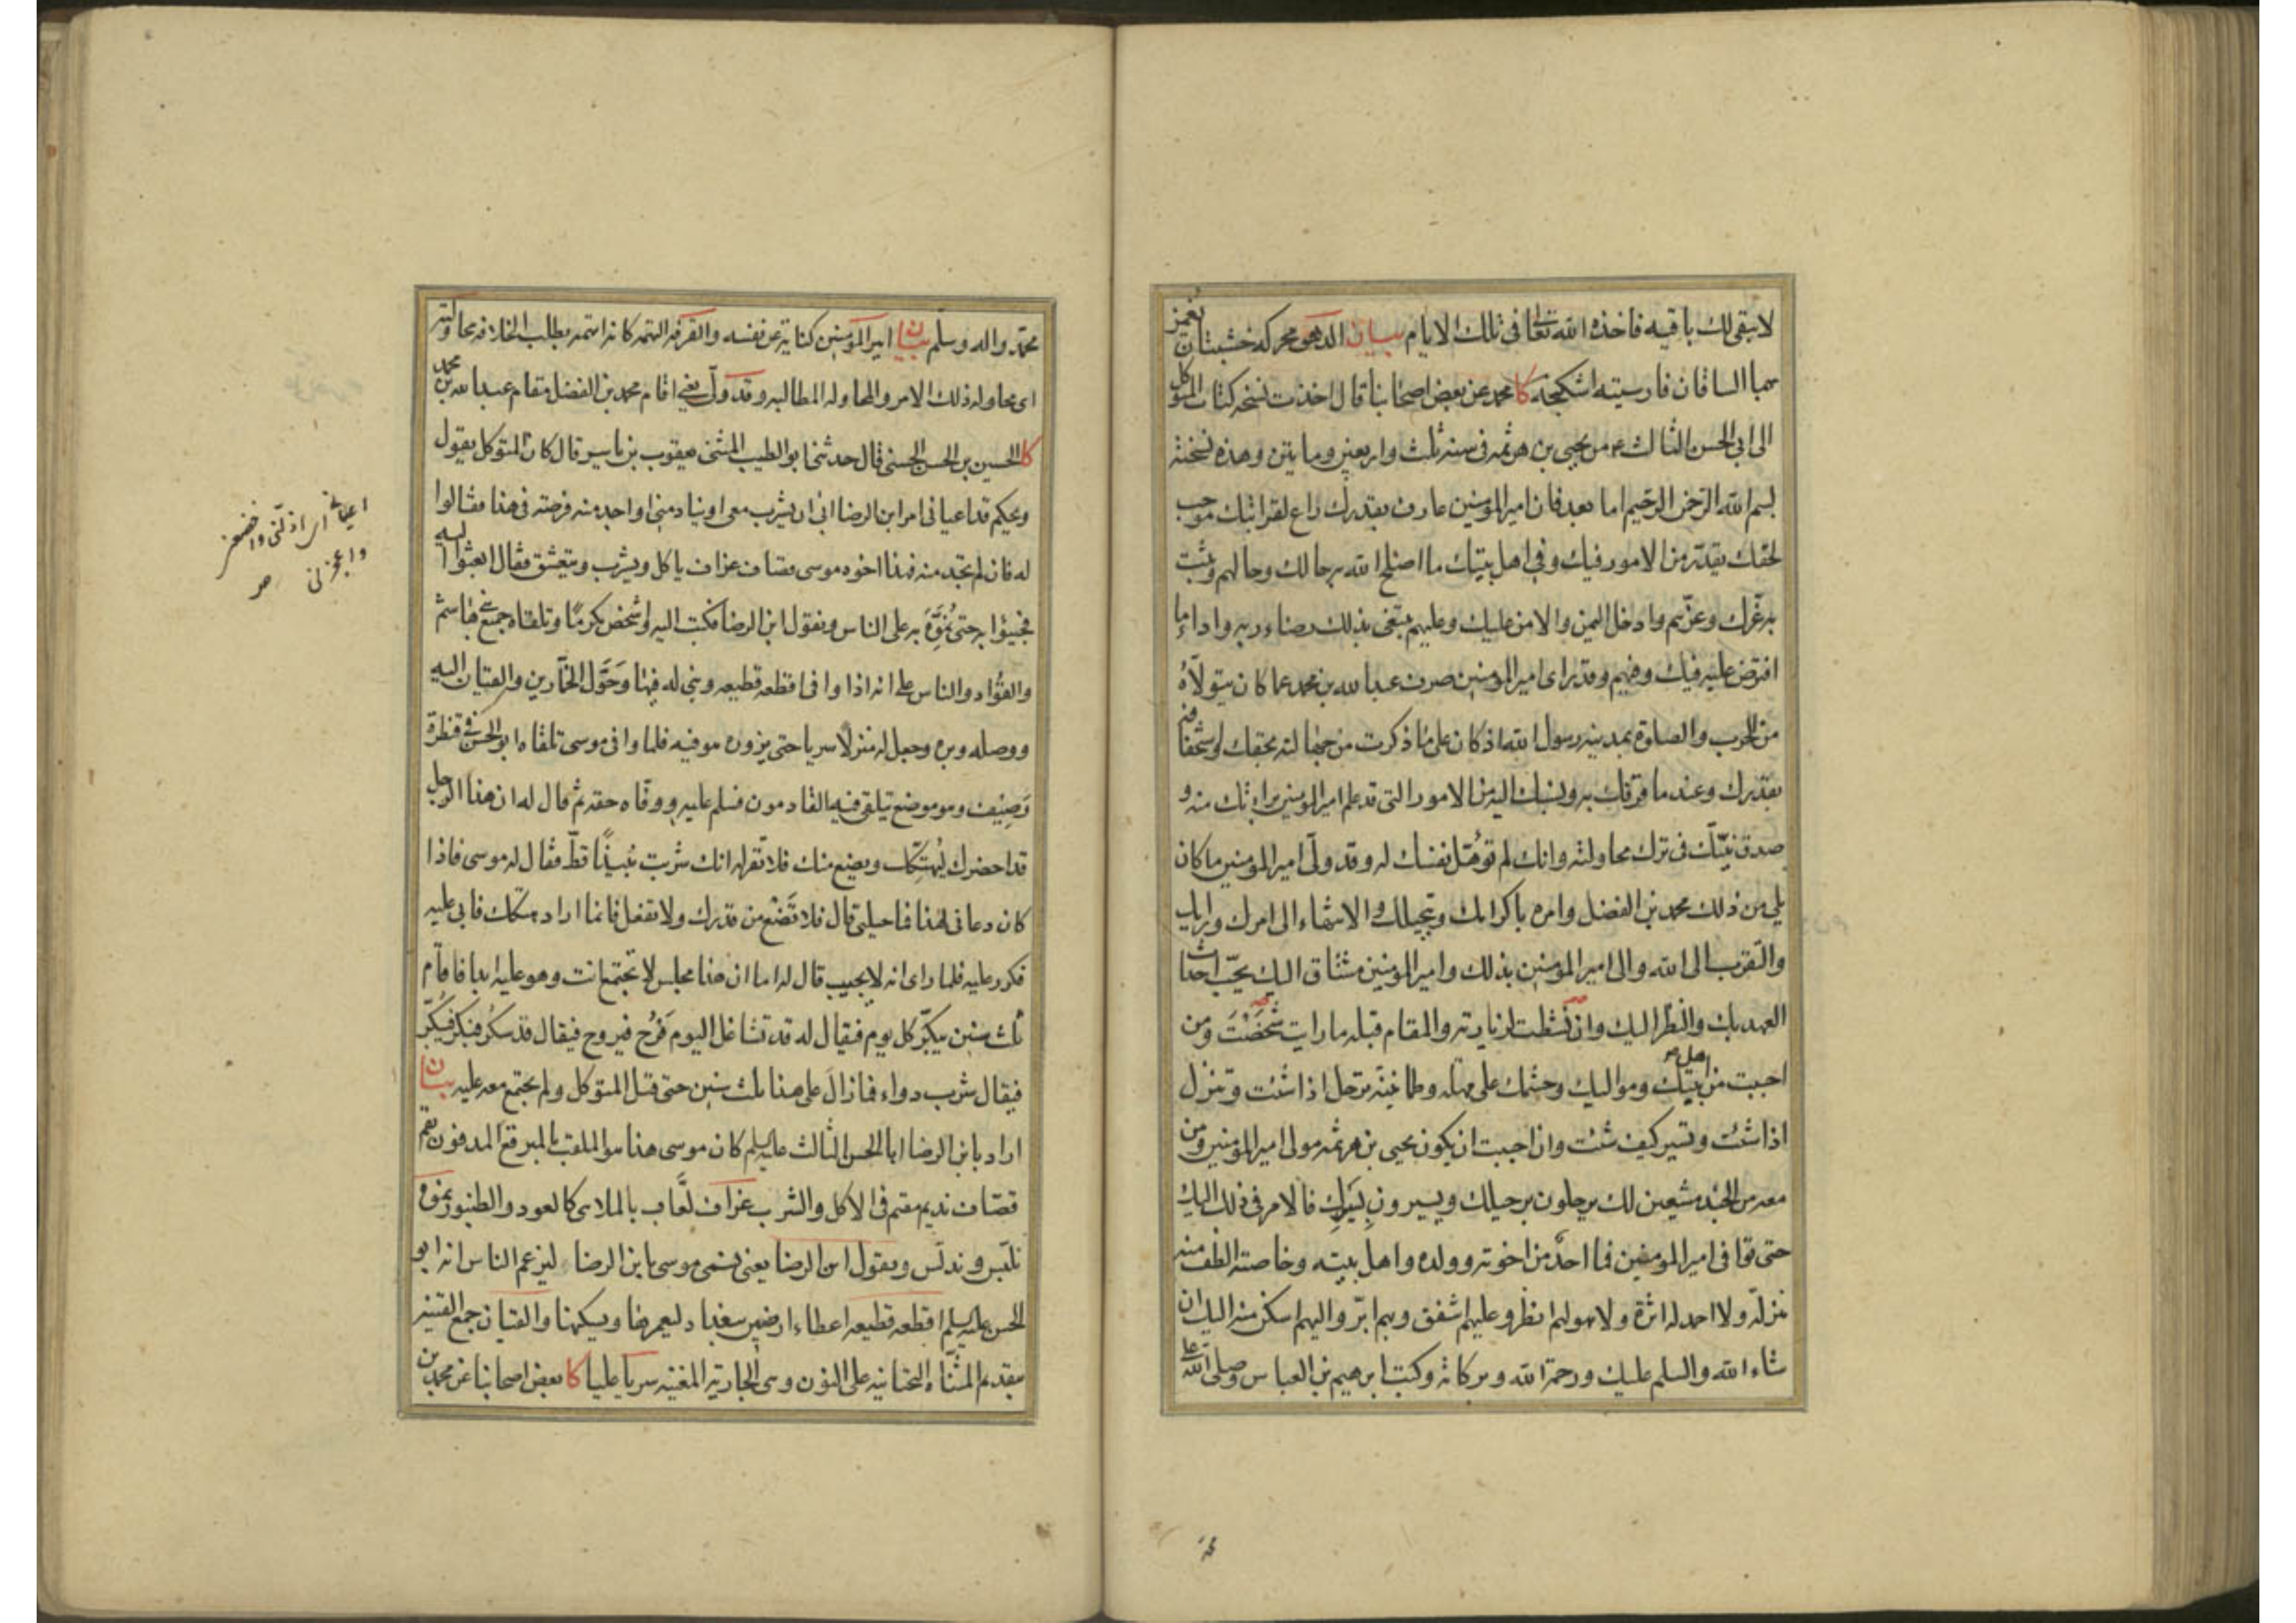 لا يبقى لك باقيه فاخذه الله تعالى فى تلك الايام بيان الدهق محركه خشبتان تغمز
بهما الساقان فارسيته اشكنجه كا محمد عن بعض اصحابنا قال اخذت نسخه كتاب المتوكل
الى ابى الحسن الثالث ع من يحيى بن هرثمه فى سنه ثلث واربعين ومايتين وهذه نسخته
بسم الله الرحمن الرحيم اما بعد فان امير المؤمنين عارف بقدرك راع لقرابتك موجب
لحقك يقدر من الامور فيك وفى اهل بيتك ما اصلح الله به حالك وحالهم ويثبت
به عزّك وعزّهم وادخل اليمن والامن عليك وعليهم يبتغى بذلك رضاء ربه واداء ما
افترض عليه فيك وفيهم وقد راى امير المؤمنين صرف عبد الله بن محمد عما كان يتولّاه
من الحرب والصلوة بمدينه رسول الله اذ كان على ما ذكرت من جهالته بحقك واستخفافه
بقدرك وعند ما قرفك به ونسبك اليه من الامور التى قد علم امير المؤمنين براءتك منه و
صدق نيّتك فى ترك محاولته وانك لم تؤهّل نفسك له وقد ولّى امير المؤمنين ما كان
يلى من ذلك محمد بن الفضل وامره باكرامك وتبجيلك والانتهاء الى امرك ورايك
والتقرب الى الله والى امير المؤمنين بذلك وامير المؤمنين مشتاق اليك يحبّ احداث
العهد بك والنظر اليك وان نشطت لزيارته والمقام قبله ما رايت شَخَصْتَ ومن
احببت من اهل بيتك ومواليك وحشمك على مهله وطمانينه ترحل اذا شئت وتنزل
اذا شئت وتسير كيف شئت وان احببت ان يكون يحيى بن هرثمه مولى امير المؤمنين ومن
معه من الجند مشيعين لك يرحلون برحيلك ويسيرون بسيرك فالامر فى ذلك اليك
حتى توافى امير المؤمنين فما احدٌ من اخوته وولده واهل بيته وخاصته الطف منه
منزله ولا احمد له اثرة ولا هو لهم انظر وعليهم اشفق وبهم ابرّ واليهم اسكن منه اليك ان
شاء الله والسلم عليك ورحمة الله وبركاته وكتب ابرهيم بن العباس وصلى الله على
محمّد واله وسلّم بيان امير المؤمنين كناية عن نفسه والقرفه التهمه كانه اتهمه بطلب الخلافه محاولته
اى محاوله ذلك الامر والمحاوله المطالبه وقد ولّى يعنى اقام محمد بن الفضل مقام عبد الله بن محمد
كا الحسين بن الحسن الحسنى قال حدثنى ابو الطيب المثنى يعقوب بن ياسر قال كان المتوكل يقول
ويحكم قد اعيانى امر ابن الرضا ابى ان يشرب معى او ينادمنى او اجد منه فرصته فى هذا فقالوا
له فان لم تجد منه فهذا اخوه موسى قصاف عزاف ياكل ويشرب ويتعشق فقال ابعثوا اليه
فجيئوا به حتى نُمَوِّهَ به على الناس ونقول ابن الرضا فكتب اليه واشخص مكرمًا وتلقاه جميع بنى هاشم
والقوّاد والناس على انه اذا وافى اقطعه قطيعه وبنى له فيها وحَوَّل الخمّارين والقيان اليه
ووصله وبره وجعل له منزلًا سريا حتى يزوره هو فيه فلما وافى موسى تلقاه ابو الحسن فى قنطرة
وَصِيْف وهو موضع يتلقى فيه القادمون فسلم عليه ووفّاه حقه ثم قال له ان هذا الرجل
قد احضرك ليُهتّكك ويضع منك فلا تقرّ له انك شربت نبيذًا قطّ فقال له موسى فاذا
كان دعانى لهذا فما حيلتى قال فلا تَضَعْ من قدرك ولا تفعل فانما اراد هتكك فابى عليه
فكرر عليه فلما راى انه لا يجيب قال له اما ان هذا مجلس لا تجتمع انت وهو عليه ابدا فاقام
ثلث سنين يبكّر كل يوم فيقال له قد تشاغل اليوم فَرُح فيروح فيقال قد سكر فبكّر فيبكّر
فيقال شرب دواء فما زال على هذا ثلث سنين حتى قتل المتوكل ولم يجتمع معه عليه بيان
اراد بابن الرضا ابا الحسن الثالث عليه السلم كان موسى هذا هو الملقب بالمبرقع المدفون بقم
قصّاف نديم مقيم فى الاكل والشرب عزاف لعّاب بالملاهى كالعود والطنبور نموّه
نلبّس وندلّس ونقول ابن الرضا يعنى نسمى موسى بابن الرضا ليزعم الناس انه ابو
الحسن عليه السلم اقطعه قطيعه اعطاء ارضين ببغداد ليعمرها ويسكنها والقيان جمع القينه
بتقديم المثنّاه التحتانيه على النون وهى الجاريه المغنيه سريا عليا كا بعض اصحابنا عن محمد بن
اعيانى اى اذلّنى
واعجزنى